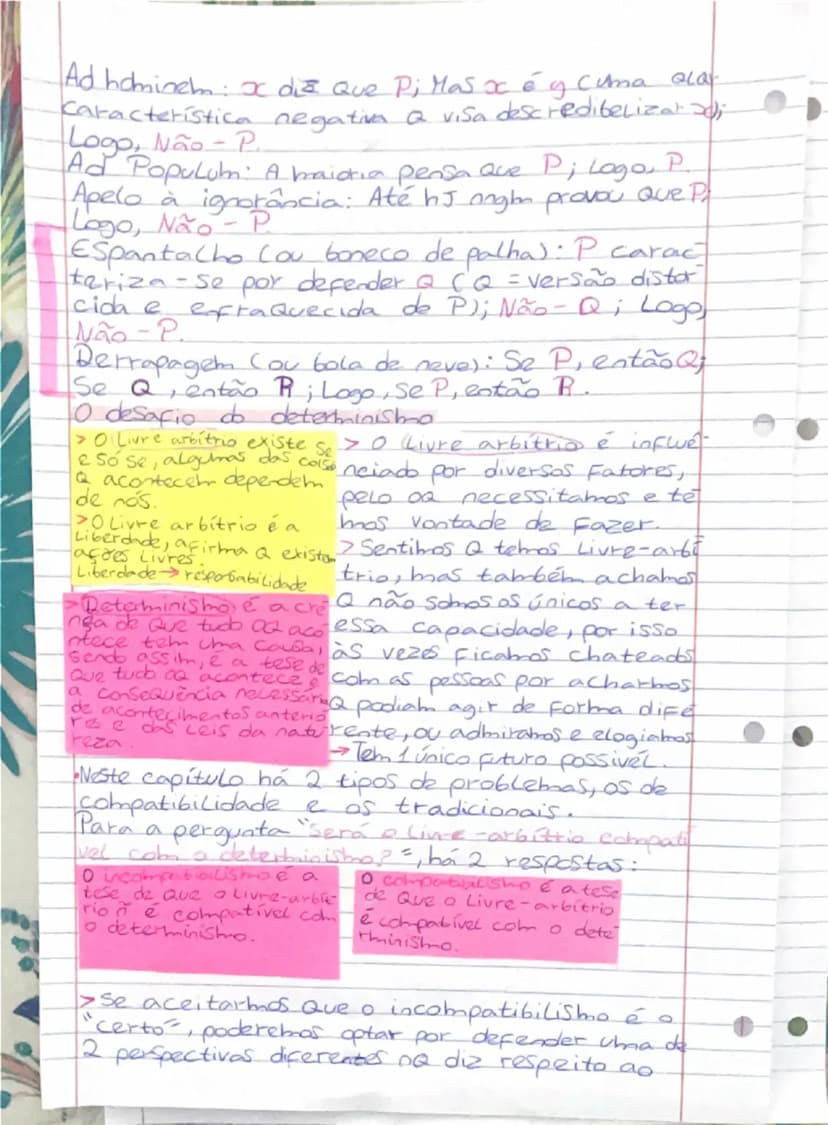 Ad hominem: x diz que P; Mas x é y (uma
característica negativa q visa descredibelizar x);
Logo, Não-P.
Ad Populum: A maioria pensa que P; Logo, P.
Apelo à ignorância: Até hj nngm provou que P;
Logo, Não-P
Espantalho (ou boneco de palha): P carac-
teriza-se por defender Q (Q = versão distor
cida e enfraquecida de P); Não-Q; Logo,
Não-P.
Derrapagem (ou bola de neve): Se P, então Q;
Se Q, então R; Logo, Se P, então R.
O desafio do determinismo
> O Livre arbítrio existe se
e só se, algumas das coisas
q acontecem dependem
de nós.
> O Livre arbítrio é a
Liberdade, afirma q existem
ações Livres
Liberdade → responsabilidade
> Determinismo é a cre
nça de que tudo oq aco
ntece tem uma causa,
sendo assim, é a tese de
que tudo oq acontece é
a consequência necessária
de acontecimentos anterio
res e das Leis da natu
reza.
> O Livre arbítrio é influê-
nciado por diversos fatores,
pelo oq necessitamos e te
mos vontade de fazer.
> Sentimos q temos Livre-arbí
trio, mas também achamos
q não somos os únicos a ter
essa capacidade, por isso
às vezes ficamos chateados
com as pessoas por acharmos
q podiam agir de forma dife
rente, ou admiramos e elogiamos
→ Tem 1 único futuro possível.
• Neste capítulo há 2 tipos de problemas, os de
compatibilidade e os tradicionais.
Para a pergunta "será o Livre-arbítrio compatí
vel com o determinismo?", há 2 respostas:
O incompatibilismo é a
tese de que o Livre-arbít
rio ñ é compatível com
o determinismo.
O compatibilismo é a tese
de que o Livre-arbítrio
é compatível com o dete
rminismo.
> Se aceitarmos que o incompatibilismo é o
"certo", poderemos optar por defender uma de
2 perspectivas diferentes no q diz respeito ao